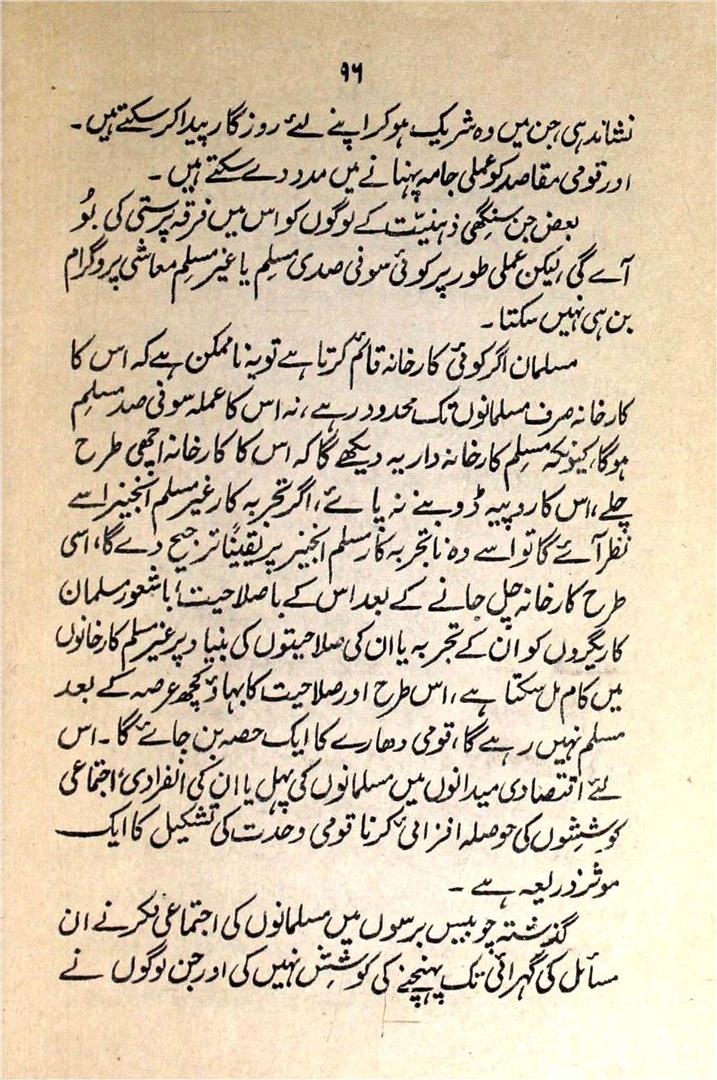 ۹۶
نشاندہی، جن میں وہ شریک ہو کر اپنے لئے روزگار پیدا کر سکتے ہیں۔
اور قومی مقاصد کو عملی جامہ پہنانے میں مدد دے سکتے ہیں۔
بعض جن سنگھی ذہنیّت کے لوگوں کو اس میں فرقہ پرستی کی بُو
آئے گی، لیکن عملی طور پر کوئی سو فی صدی مسلم یا غیر مسلم معاشی پروگرام
بن ہی نہیں سکتا۔
مسلمان اگر کوئی کارخانہ قائم کرتا ہے تو یہ نا ممکن ہے کہ اس کا
کارخانہ صرف مسلمانوں تک محدود رہے، نہ اس کا عملہ سو فی صد مسلم
ہوگا، کیونکہ مسلم کارخانہ دار یہ دیکھے گا کہ اس کا کارخانہ اچھی طرح
چلے، اس کا روپیہ ڈوبنے نہ پائے، اگر تجربہ کار غیر مسلم انجنیر اسے
نظر آئے گا تو اسے وہ نا تجربہ کار مسلم انجنیر پر یقینًا ترجیح دے گا، اسی
طرح کارخانہ چل جانے کے بعد اس کے باصلاحیت، باشعور مسلمان
کاریگروں کو ان کے تجربہ یا ان کی صلاحیتوں کی بنیاد پر غیر مسلم کارخانوں
میں کام مل سکتا ہے، اس طرح اور صلاحیت کا بہاؤ کچھ عرصہ کے بعد
مسلم نہیں رہے گا، قومی دھارے کا ایک حصہ بن جائے گا۔ اس
لئے اقتصادی میدانوں میں مسلمانوں کی پہل یا ان کی انفرادی، اجتماعی
کوششوں کی حوصلہ افزائی کرنا قومی وحدت کی تشکیل کا ایک
موثر ذریعہ ہے۔
گذشتہ چوبیس برسوں میں مسلمانوں کی اجتماعی فکر نے ان
مسائل کی گہرائی تک پہنچنے کی کوشش نہیں کی اور جن لوگوں نے